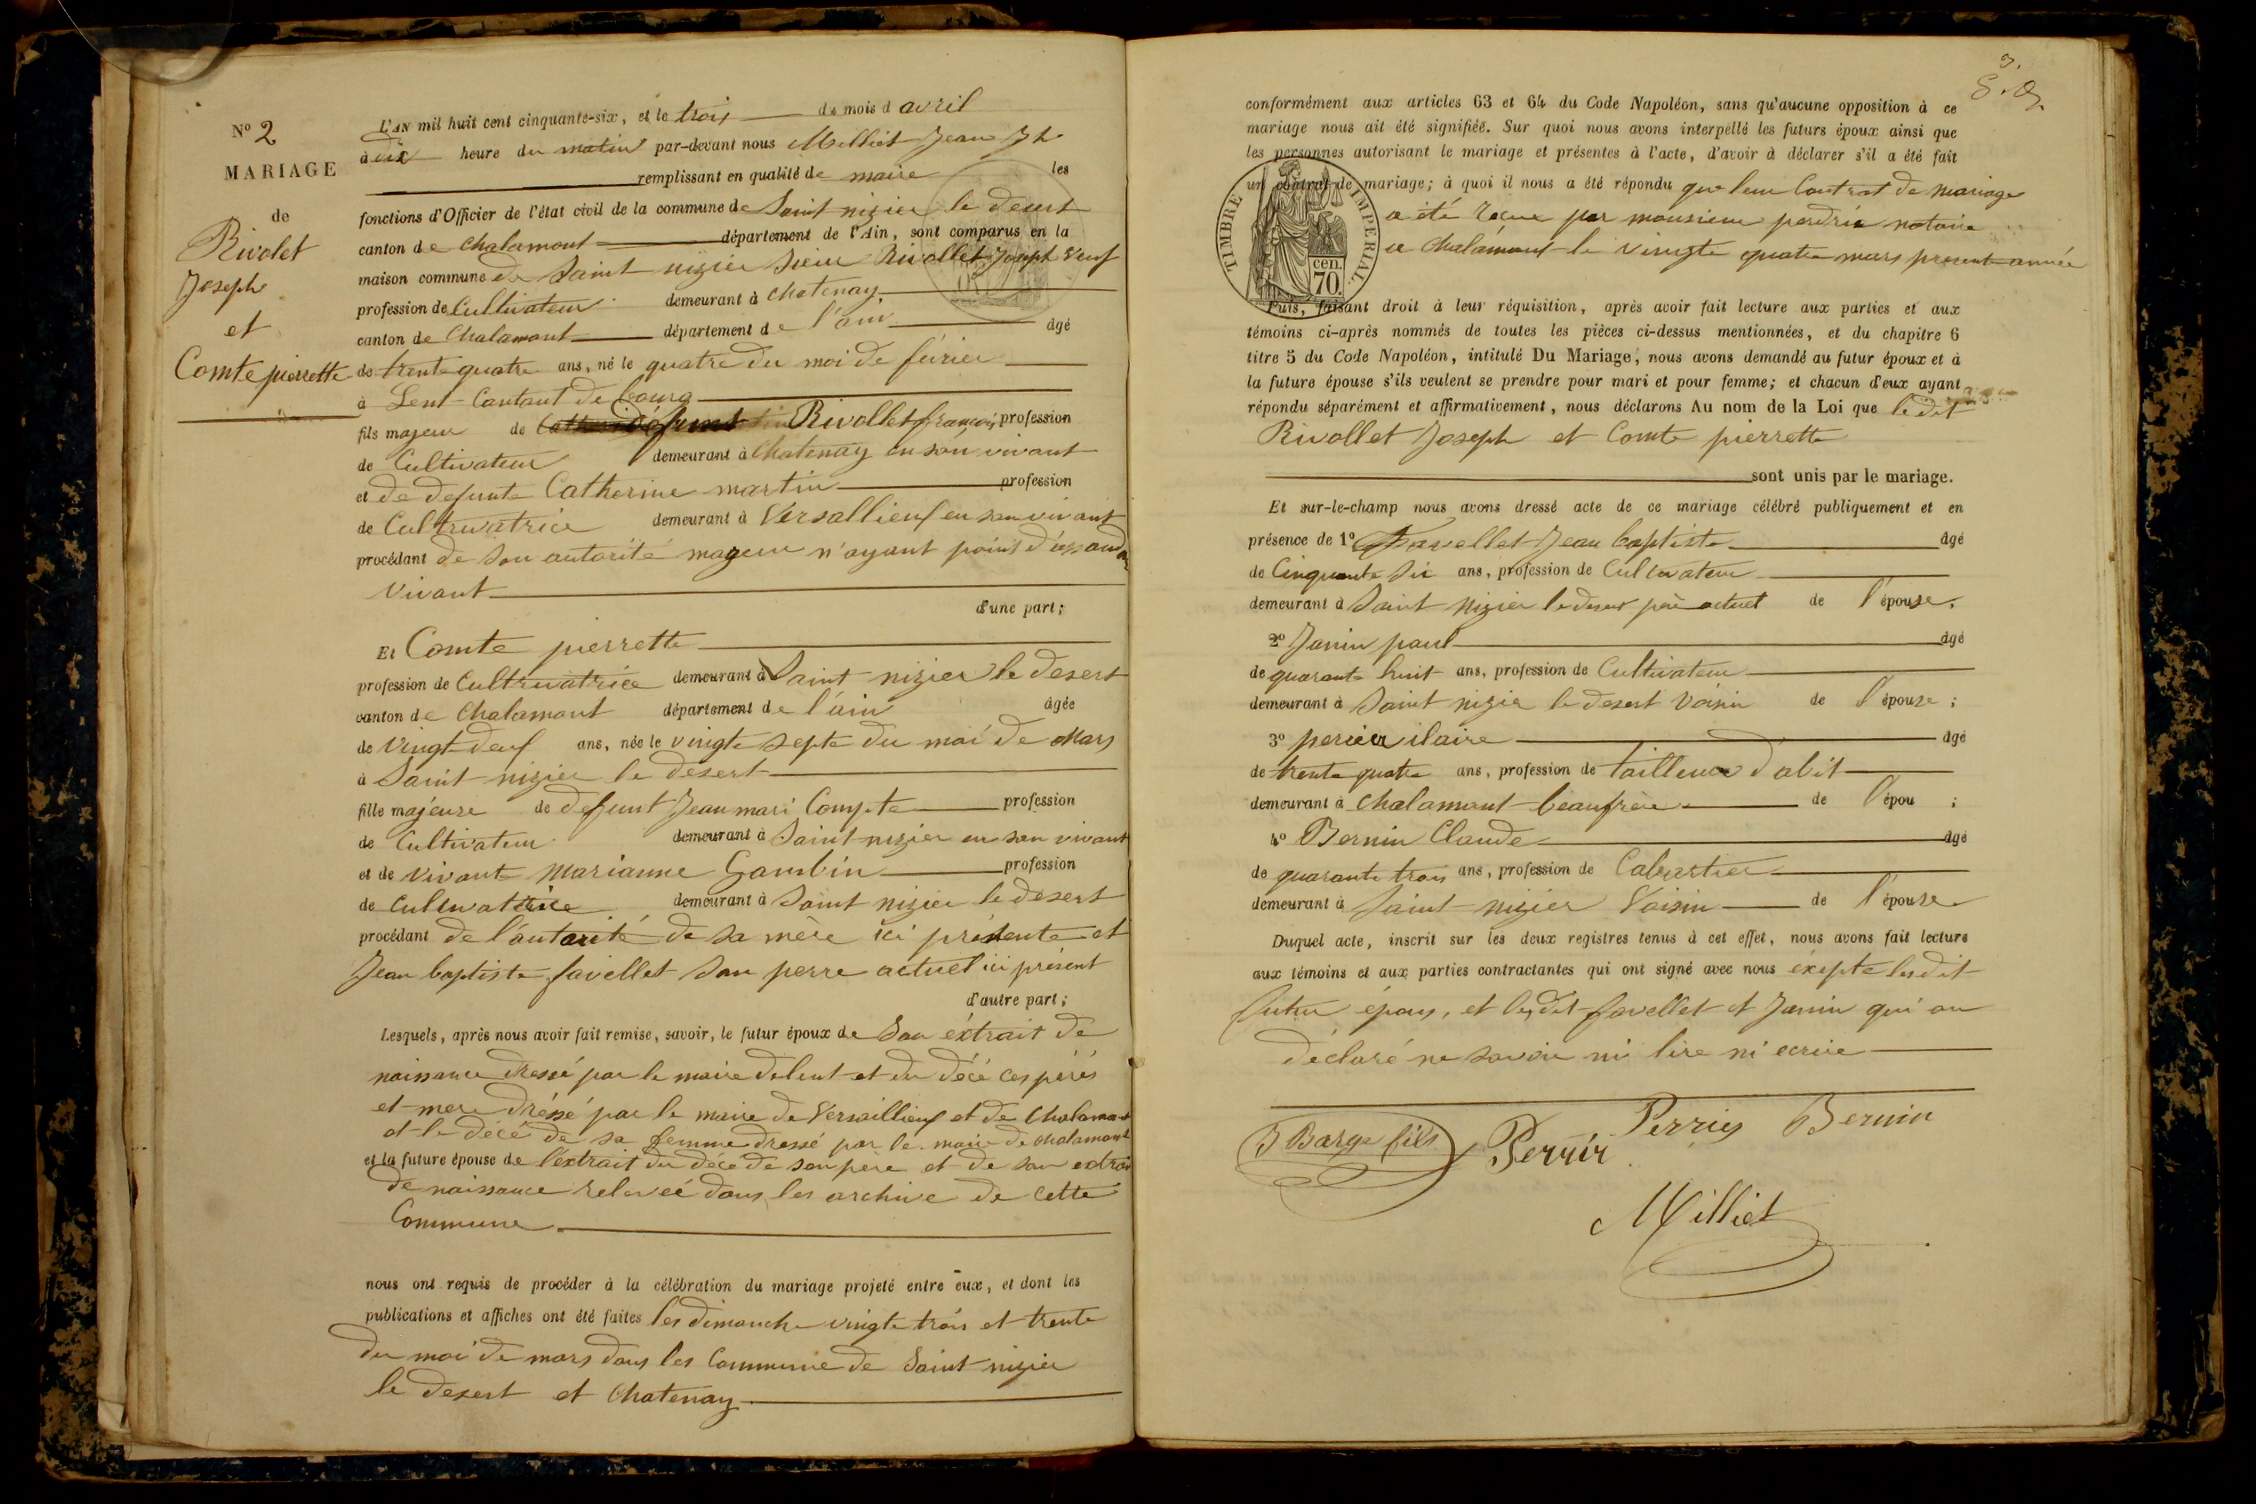 N° 2
MARIAGE
de
Rivolet
Joseph
et
Comte pierrette
L'AN mil huit cent cinquante-six, et le trois du mois d avril
à dix heure du matin par-devant nous Milliet Jean
remplissant en qualité de maire les
fonctions d'Officier de l'état civil de la commune de Saint nizier le desert
canton de chalamont département de l'Ain, sont comparus en la
maison commune de Saint nizier sieur Rivollet Joseph veuf
profession de Cultivateur demeurant à chatenay
canton de Chalamont département de l'ain âgé
de trente quatre ans, né le quatre du moi de février
à Lent Cantont de bourg
fils majeur de défunt Rivollet françois profession
de Cultivateur demeurant à Chatenay en son vivant
et de defunte Catherine martin profession
de Cultivatrice demeurant à Versallieux en son vivant
procédant de son autorité mageur n'ayant point d'assandan
vivant
d'une part;
Et Comte pierrette
profession de Cultrivatrice demeurant à Saint nizier le desert
canton de Chalamont département de l'ain âgée
de vingt deuf ans, née le vingte septe du moi de Mars
à Saint nizier le desert
fille majeure de defunt Jean mari Compte profession
de Cultivateur demeurant à Saint nizier en son vivant
et de vivante Marianne Gambin profession
de Cultivatrice demeurant à Saint nizier le desert
procédant de l'autorité de sa mère ici présente et
Jean baptiste favellet son perre actuel ici présent
d'autre part;
Lesquels, après nous avoir fait remise, savoir, le futur époux de Son éxtrait de
naissance dressé par le maire de lent et du décé ces pérés
et mere dréssé par le maire de Versaillieux et de Chalamont
et le décé de sa femme dressé par le maire de chalamont
et la future épouse de l'extrait du déce de son père et de son extrai
de naissance releveé dans les archive de cette
Commune
nous ont requis de procéder à la célébration du mariage projeté entre eux, et dont les
publications et affiches ont été faites les dimanche vingte trois et trente
du moi de mars dans les Commune de Saint nizier
le desert et Chatenay
conformément aux articles 63 et 64 du Code Napoléon, sans qu'aucune opposition à ce
mariage nous ait été signifiée. Sur quoi nous avons interpellé les futurs époux ainsi que
les personnes autorisant le mariage et présentes à l'acte, d'avoir à déclarer s'il a été fait
un contrat de mariage; à quoi il nous a été répondu que leur Contrat de mariage
a été recue par monsieur perdrix notaire
a Chalamont le vingte quatre mars present année
TIMBRE IMPERIAL
cen.
70.
Puis, faisant droit à leur réquisition, après avoir fait lecture aux parties et aux
témoins ci-après nommés de toutes les pièces ci-dessus mentionnées, et du chapitre 6
titre 5 du Code Napoléon, intitulé Du Mariage, nous avons demandé au futur époux et à
la future épouse s'ils veulent se prendre pour mari et pour femme; et chacun d'eux ayant
répondu séparément et affirmativement, nous déclarons Au nom de la Loi que le dit
Rivollet Joseph et Comte pierrette
sont unis par le mariage.
Et sur-le-champ nous avons dressé acte de ce mariage célébré publiquement et en
présence de 1° Favellet Jean baptiste âgé
de Cinquante Six ans, profession de Cultivateur
demeurant à Saint Nizier le desert père actuel de l'épouse.
2° Janin paul âgé
de quarante huit ans, profession de Cultivateur
demeurant à Saint nizier le desert voisin de l'épouse;
3° perier ilaire âgé
de trente quatre ans, profession de tailleur d'abit
demeurant à Chalamont beaufrère de l'épou ;
4° Bernin Claude âgé
de quarante trois ans, profession de Cabartier
demeurant à Saint nizier Voisin de l'épouse
Duquel acte, inscrit sur les deux registres tenus à cet effet, nous avons fait lecture
aux témoins et aux parties contractantes qui ont signé avec nous éxepte lesdit
futur épous, et lesdit favellet et Janin qui on
déclaré ne savoir ni lire ni ecrire
J Barge fils Perrir Perries Bernin
Milliet